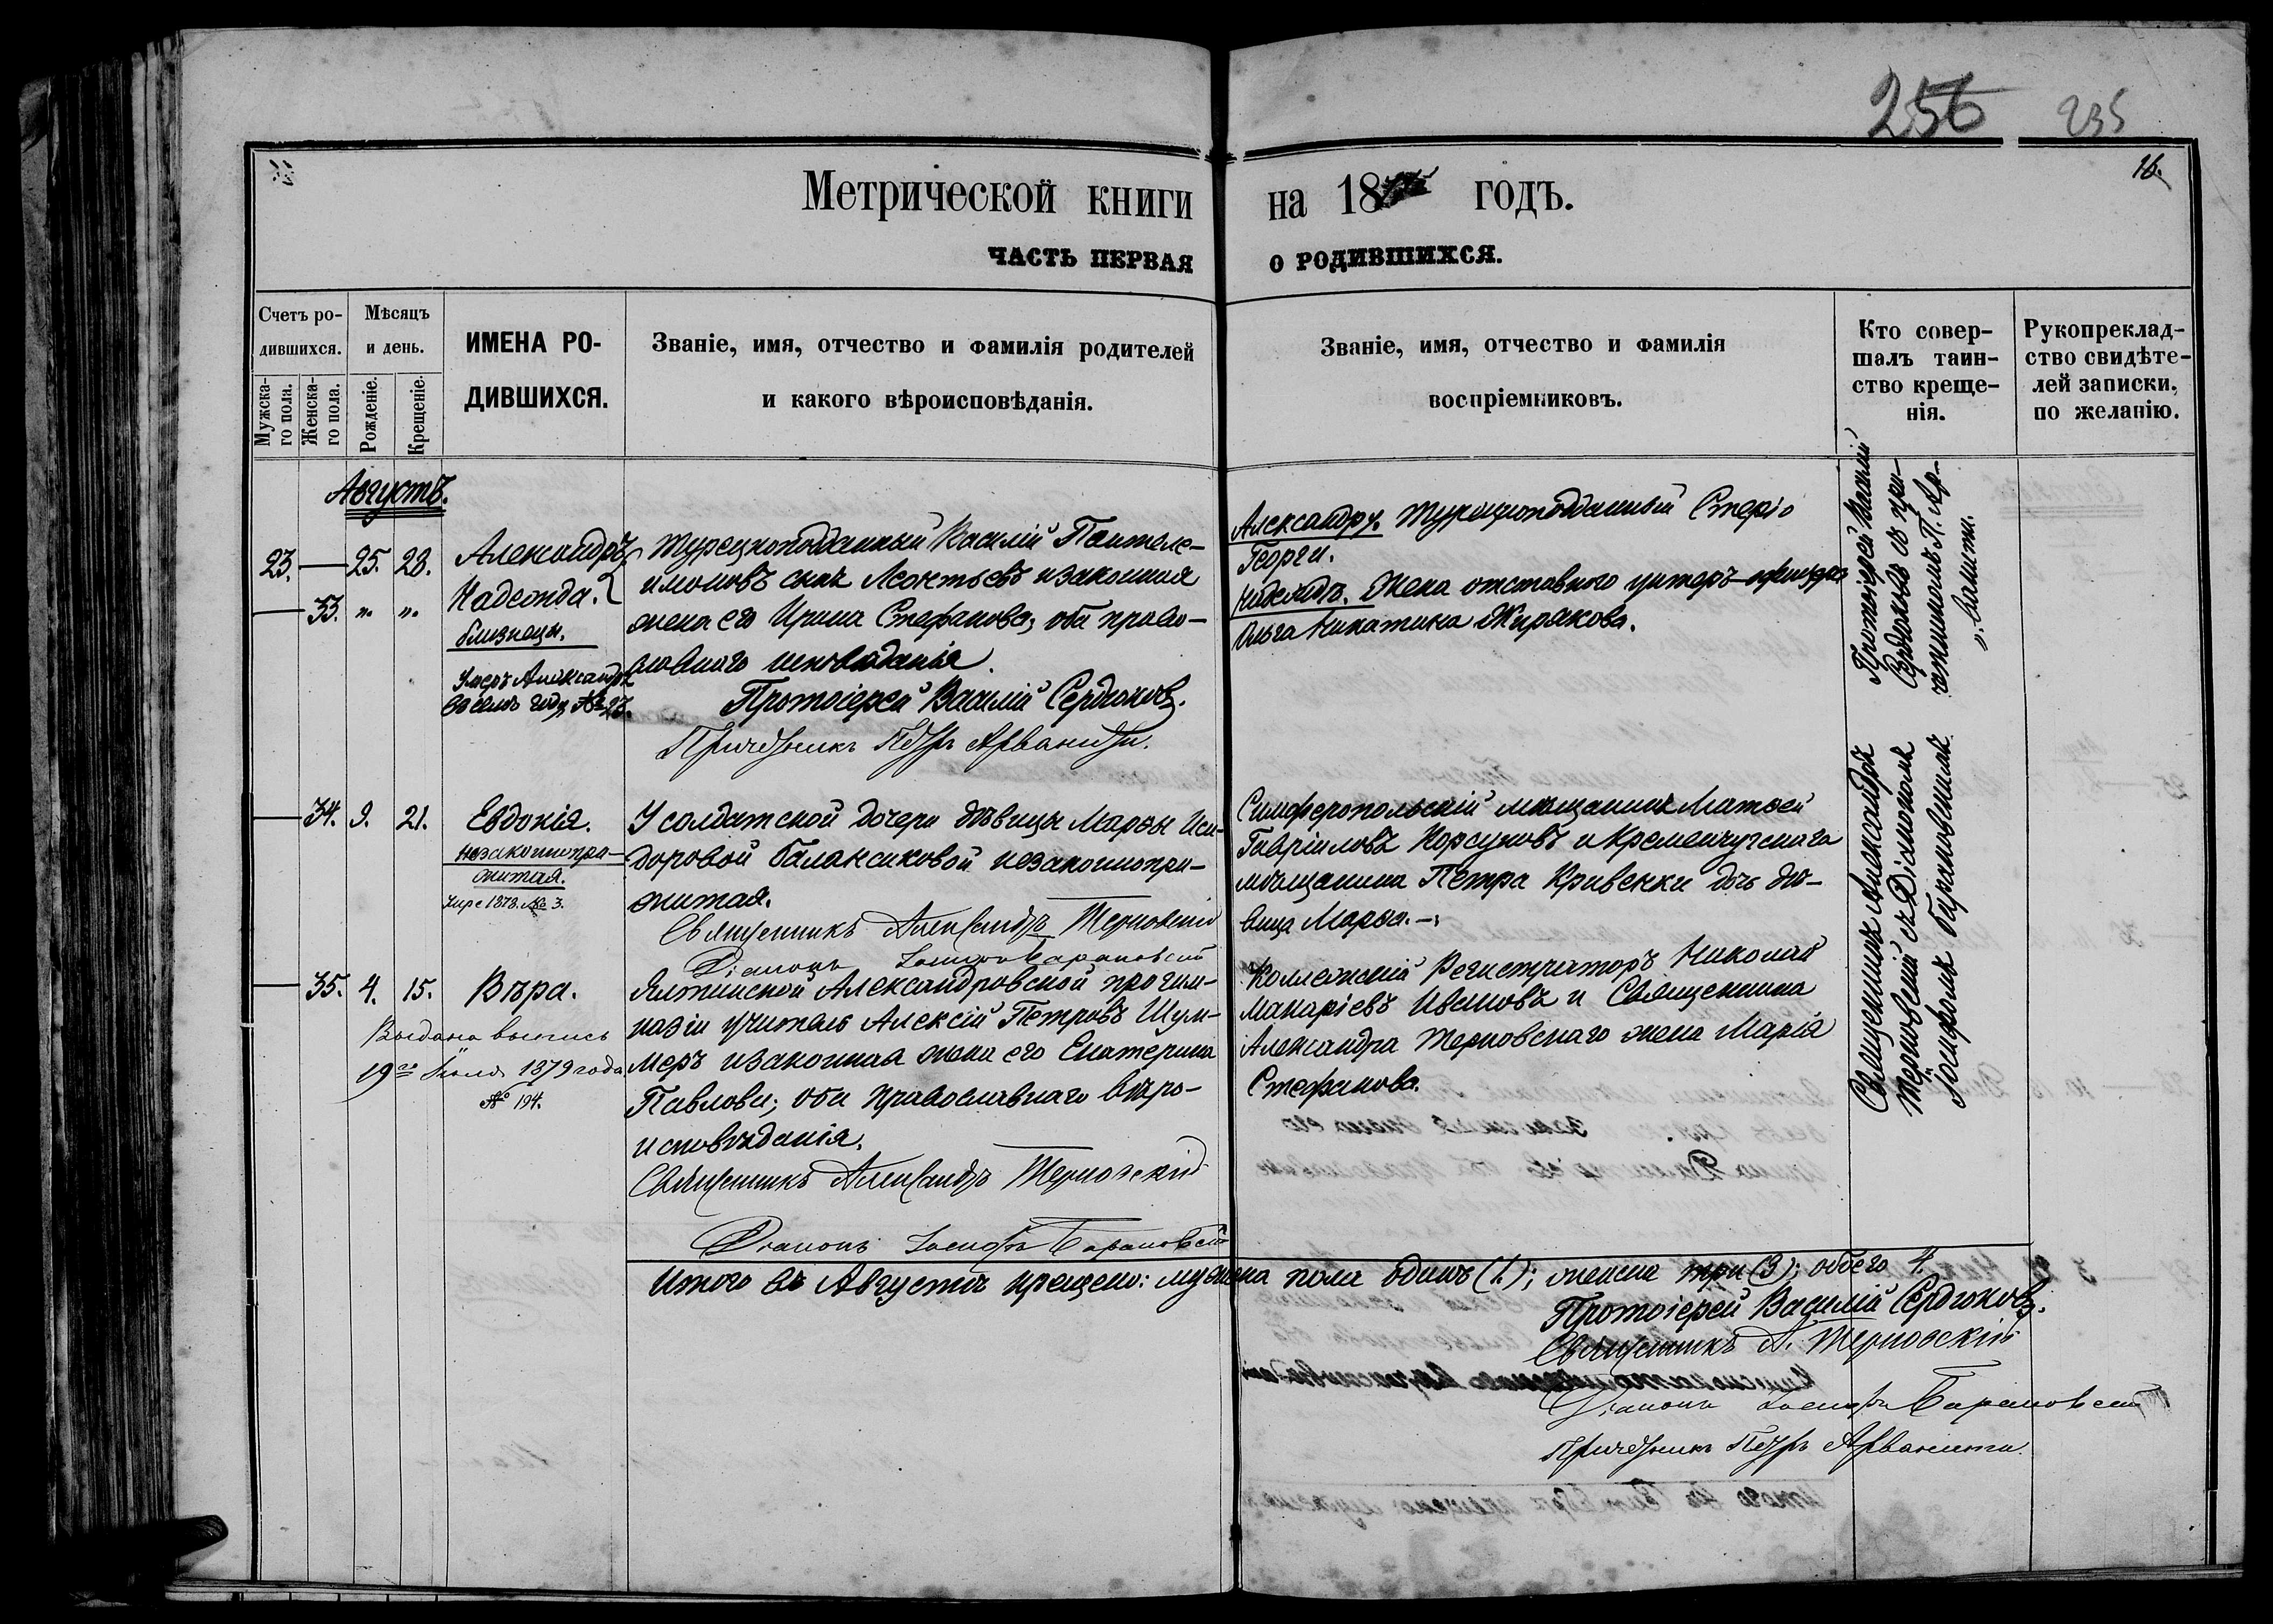 256 235
16.
Метрической книги на 18 годъ.
ЧАСТЬ ПЕРВАЯ О РОДИВШИХСЯ.
Счетъ ро-
дившихся.
Мужска-
го пола.
Женска-
го пола.
Мѣсяцъ
и день.
Рожденіе.
Крещеніе.
ИМЕНА РО-
ДИВШИХСЯ.
Званіе, имя, отчество и фамилія родителей
и какого вѣроисповѣданія.
Званіе, имя, отчество и фамилія
воспріемниковъ.
Кто совер-
шалъ таин-
ство креще-
нія.
Рукопреклад-
ство свидѣте-
лей записки,
по желанію.
Августъ.
23. 25. 28. Александръ
33. „ „ Надежда.
близнецы.
Умеръ Александръ
въ семъ году № 23.
Турецкоподданный Василій Пантеле-
имоновъ сынъ Леонтьевъ и законная
жена его Ирина Стефанова, оба право-
славного исповѣданія.
Протоіерей Василій Сердюковъ.
Причетникъ Петръ Арваниди.
Александру. Турецкоподданный Стеріо
Георги.
Надеждѣ. Жена отставного унтеръ-офицера
Ольга Никитина Жирякова.
Протоіерей Василій
Сердюковъ съ при-
четникомъ П. Ар-
ванити.
34. 9. 21. Евдокія.
незаконнопри-
житая.
Умре 1878. № 3.
У солдатской дочери дѣвицы Марѳы Иси-
доровой Балаксиковой незаконнопри-
житая.
Священникъ Александръ Терновскій
Діаконъ Іосифъ Барановскій
Симферопольскій мѣщанинъ Матвей
Гавріиловъ Корсуновъ и Кременчугскаго
мѣщанина Петра Кривенки дочь дѣ-
вица Марѳа.
Священникъ Александръ
Терновскій съ Діакономъ
Іосифомъ Барановскимъ.
35. 4. 15. Вѣра.
Выдана выпись
19го Іюля 1879 года
№ 194.
Ялтинской Александровской прогим-
назіи учитель Алексій Петровъ Шум-
меръ и законная жена его Екатерина
Павлова; оба православнаго вѣро-
исповѣданія.
Священникъ Александръ Терновскій
Діаконъ Іосифъ Барановскій
Коллежскій Регистраторъ Николай
Макаріевъ Ивановъ и Священника
Александра Терновскаго жена Марія
Стефанова.
Итого въ Августѣ крещено: мужска пола одинъ (1.); женска три (3); обоего 4.
Протоіерей Василій Сердюковъ.
Священникъ А. Терновскій
Діаконъ Іосифъ Барановскій
Причетникъ Петръ Арванити.